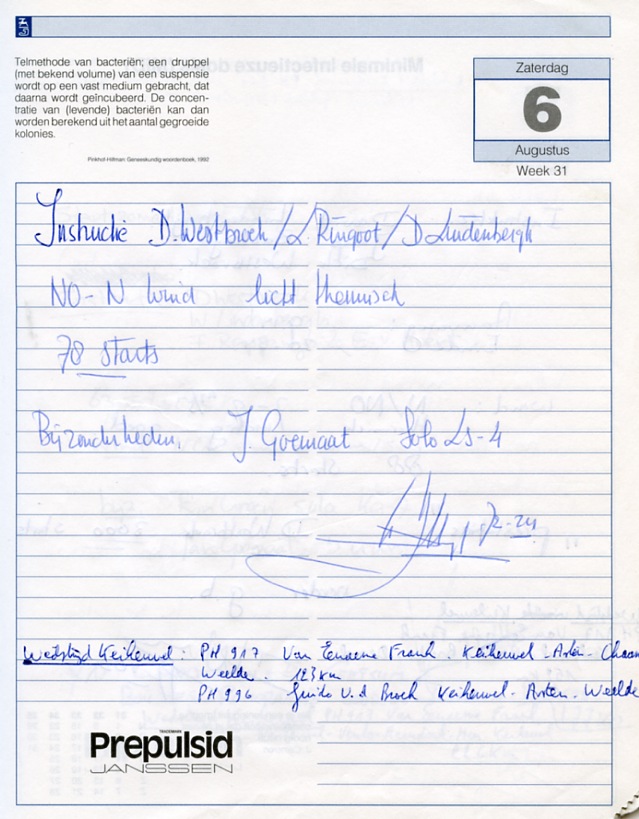 Telmethode van bacteriën; een druppel
(met bekend volume) van een suspensie
wordt op een vast medium gebracht, dat
daarna wordt geïncubeerd. De concen-
tratie van (levende) bacteriën kan dan
worden berekend uit het aantal gegroeide
kolonies.
Pinkhof-Hilfman: Geneeskundig woordenboek, 1992
Zaterdag
6
Augustus
Week 31
Instructie D. Westbroek / L. Ringoot / D
NO-N wind licht thermisch
78 starts
Bijzonderheden, J. Goemaat Solo LS-4
Wedstrijd Keiheuvel: PH 917 Van Endeme Frank. Keiheuvel - - Chaam
Weelde. 123 km
PH 996 Guido V.d Broek Keiheuvel - - Weelde
Prepulsid
JANSSEN